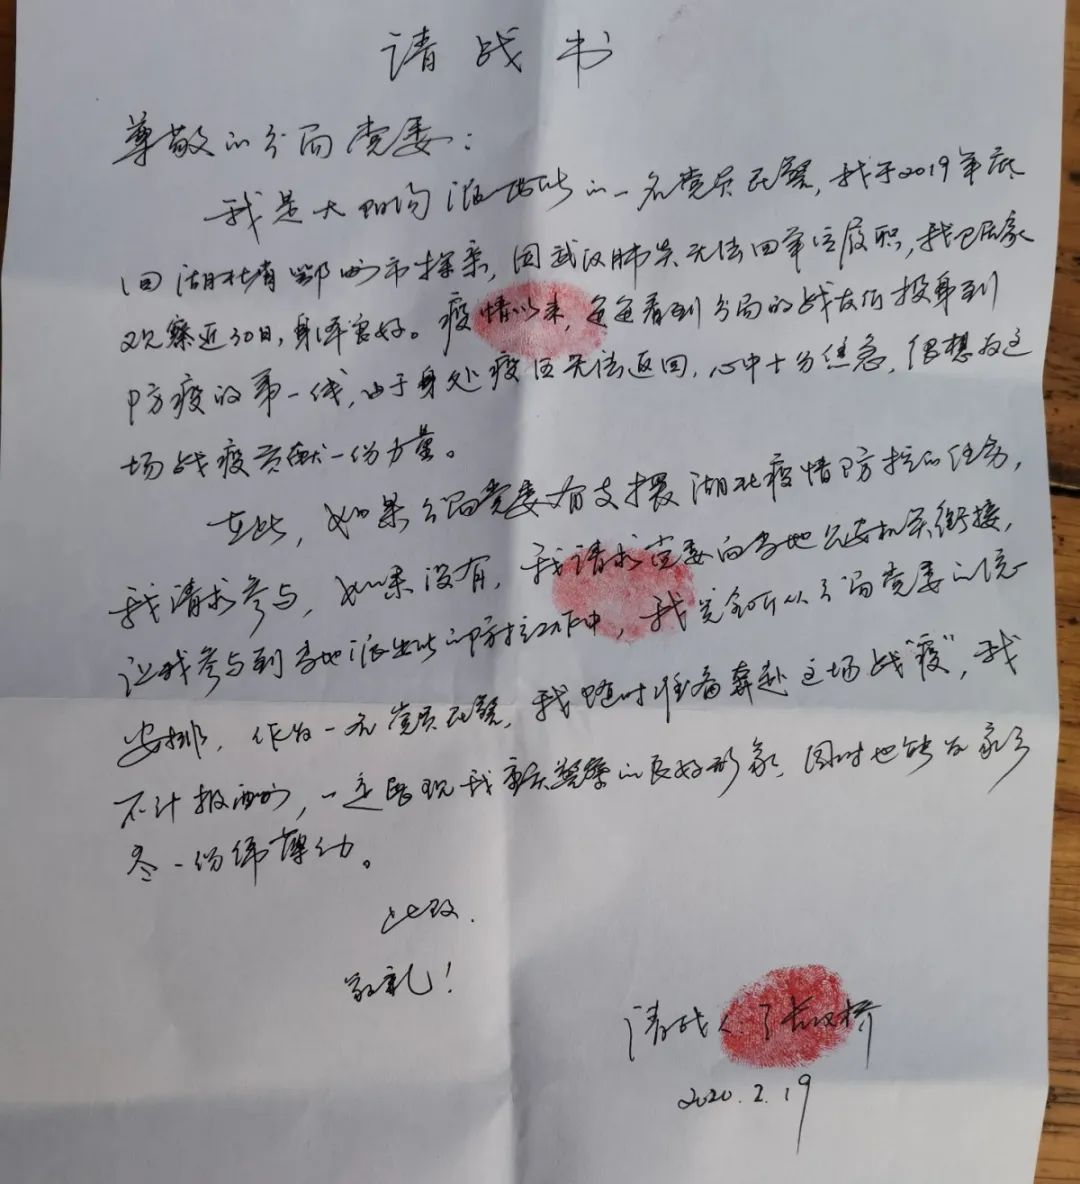 请战书
尊敬的分局党委：
我是大阳沟派出所的一名党员民警，我于2019年底
回湖北省鄂州市探亲，因武汉肺炎无法回单位履职，我已居家
观察近30日，身体良好。疫情以来，每每看到分局的战友们投身到
防疫的第一线，由于身处疫区无法返回，心中十分焦急，很想为这
场战疫贡献一份力量。
在此，如果分局党委有支援湖北疫情防控的任务，
我请求参与，如果没有，我请求党委向当地公安机关衔接，
让我参与到当地派出所的防控工作中，我完全听从分局党委的统一
安排，作为一名党员民警，我随时准备奔赴这场战“疫”，我
不计报酬，一定展现我重庆警察的良好形象，同时也能为家乡
尽一份绵薄之力。
此致
敬礼！
请战人：张汉桥
2020.2.19